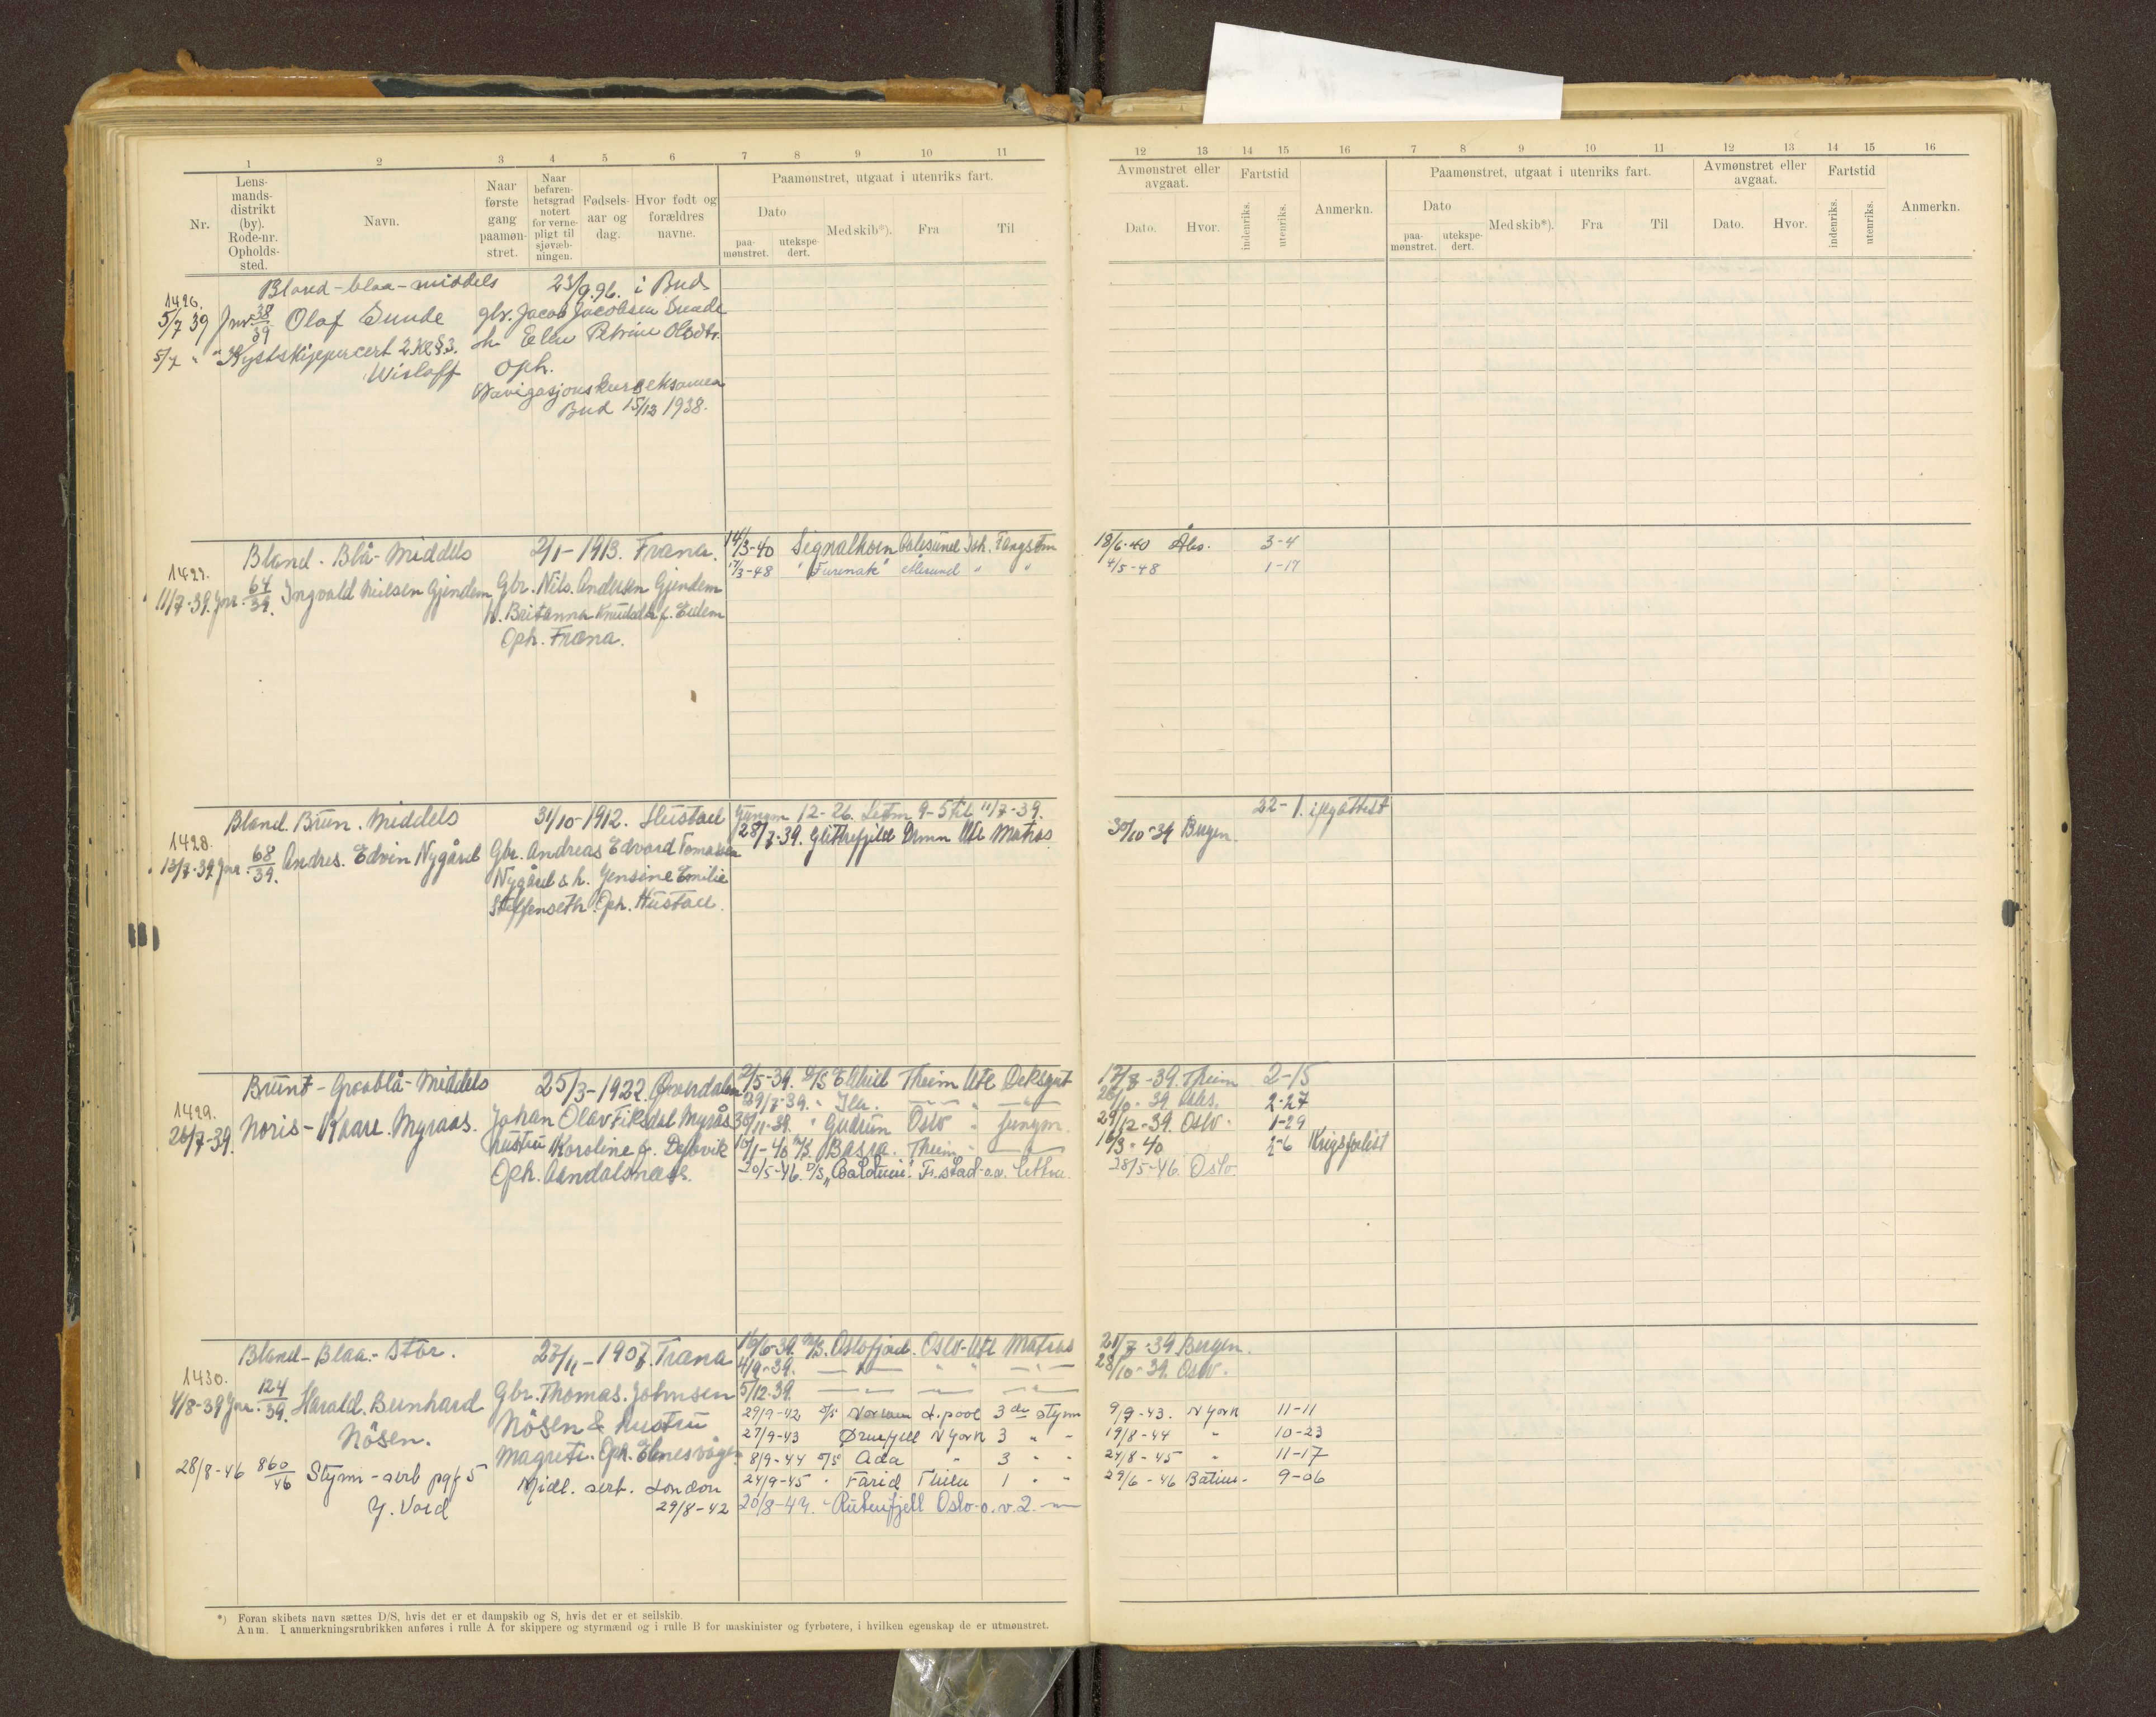 1 2 3 4 5 6 7 8 9 10 11
Nr.
Lens-
mands-
distrikt
(by).
Rode-nr.
Opholds-
sted.
Navn.
Naar
første
gang
paamøn-
stret.
Naar
befaren-
hetsgrad
notert
for verne-
pligt til
sjøvæb-
ningen.
Fødsels-
aar og
dag.
Hvor født og
forældres
navne.
Paamønstret, utgaat i utenriks fart.
Dato
paa-
mønstret.
utekspe-
dert.
Med skib*).
Fra
Til
Bland-blaa-middels 23/9.96. i Bud
1426.
5/7 39 Jnr 38/39 Olaf Sunde gbr. Jacob Jacobsen Sunde
h. Elen Petrine Olsdtr.
5/7 " " Kystskippercert 2.kl §3. oph.
Wisloff Navigasjonskurseksamen
Bud 15/12 1938.
Bland. Blå-Middels 2/1-1913. Fræna. 14/3-40 Signalhorn Aalesund Ish. Fangstm
1427. 17/3-48 "Furenak" Ålesund " "
11/7-39. Jnr. 64/39. Ingvald Nielsen Gjendem Gbr. Nils. Andersen Gjendem
h. Beritanna Knudsdtr f. Eidem
Oph. Fræna.
Bland. Brun. Middels 31/10-1912. Hustad Jungm 12-26. Letm 9-5 til 11/7-39.
1428. 28/7-39. Glittrefjeld Dmn Utl Matros
13/7-39. Jnr. 68/39. Andres. Edvin Nygård Gbr. Andreas Edvard Tomassen
Nygård & h. Jensine Emilie
Steffenseth. Oph. Hustad.
Brunt-Graablå-Middels 25/3-1922. Grøvdalen 2/5-39. D/S Eikhild Theim Utl Deksgut
1429. 29/7-39. " Ila.
26/7-39. Noris-Kaare. Myraas. Johan Olav Fiksdal Myrås 30/11-39. " Gudrun Oslo " Jungm.
hustru Karoline f. Dybvik 10/1-40 M/S. Bassa. Theim
Oph. Aandalsnæs. 20/5-46. D/S "Balduin". Fr.stad-o.v. lettm.
Bland-Blaa.-Stor. 27/11-1907. Fræna 16/6-39. M/S. Oslofjord. Oslo-Utl Matros
1430. 4/9-39.
4/8-39 Jnr. 124/39. Harald. Bernhard Gbr. Thomas. Johnsen 5/12-39.
Nösen. Nösen & hustru 29/9-42 D/S L.pool 3de styrm
Magrete. Oph. Elnesvågen 27/9-43 Ørnefjell N York 3 " "
28/8-46 860/46 Styrm-serb pgf 5 8/9-44 D/S Ada " 3 " "
Midl. sert. London 24/9-45 " Farid 1 " "
Y. Vord 29/8-42 20/8-47. " Rutenfjell Oslo-o.v. 2.
*) Foran skibets navn sættes D/S, hvis det er et dampskib og S, hvis det er et seilskib.
Anm. I anmerkningsrubrikken anføres i rulle A for skippere og styrmænd og i rulle B for maskinister og fyrbøtere, i hvilken egenskap de er utmønstret.
12 13 14 15 16 7 8 9 10 11 12 13 14 15 16
Avmønstret eller
avgaat.
Dato.
Hvor.
Fartstid
indenriks.
utenriks.
Anmerkn.
Paamønstret, utgaat i utenriks fart.
Dato
paa-
mønstret.
utekspe-
dert.
Med skib*).
Fra
Til
Avmønstret eller
avgaat.
Dato.
Hvor.
Fartstid
indenriks.
utenriks.
Anmerkn.
18/6-40 Åles. 3-4
4/5-48 1-17
22-1. ifl. attest
30/10-39 Bergen.
17/8-39. Theim 2-15
26/10-39 2-27
29/12-39. Oslo. 1-29
16/3-40 2-6 Krigsforlist
28/5-46. Oslo.
21/7-39 Bergen.
28/10-39. Oslo.
9/9-43. N York 11-11
19/8-44 " 10-23
24/8-45 " 11-17
29/6-46 9-06